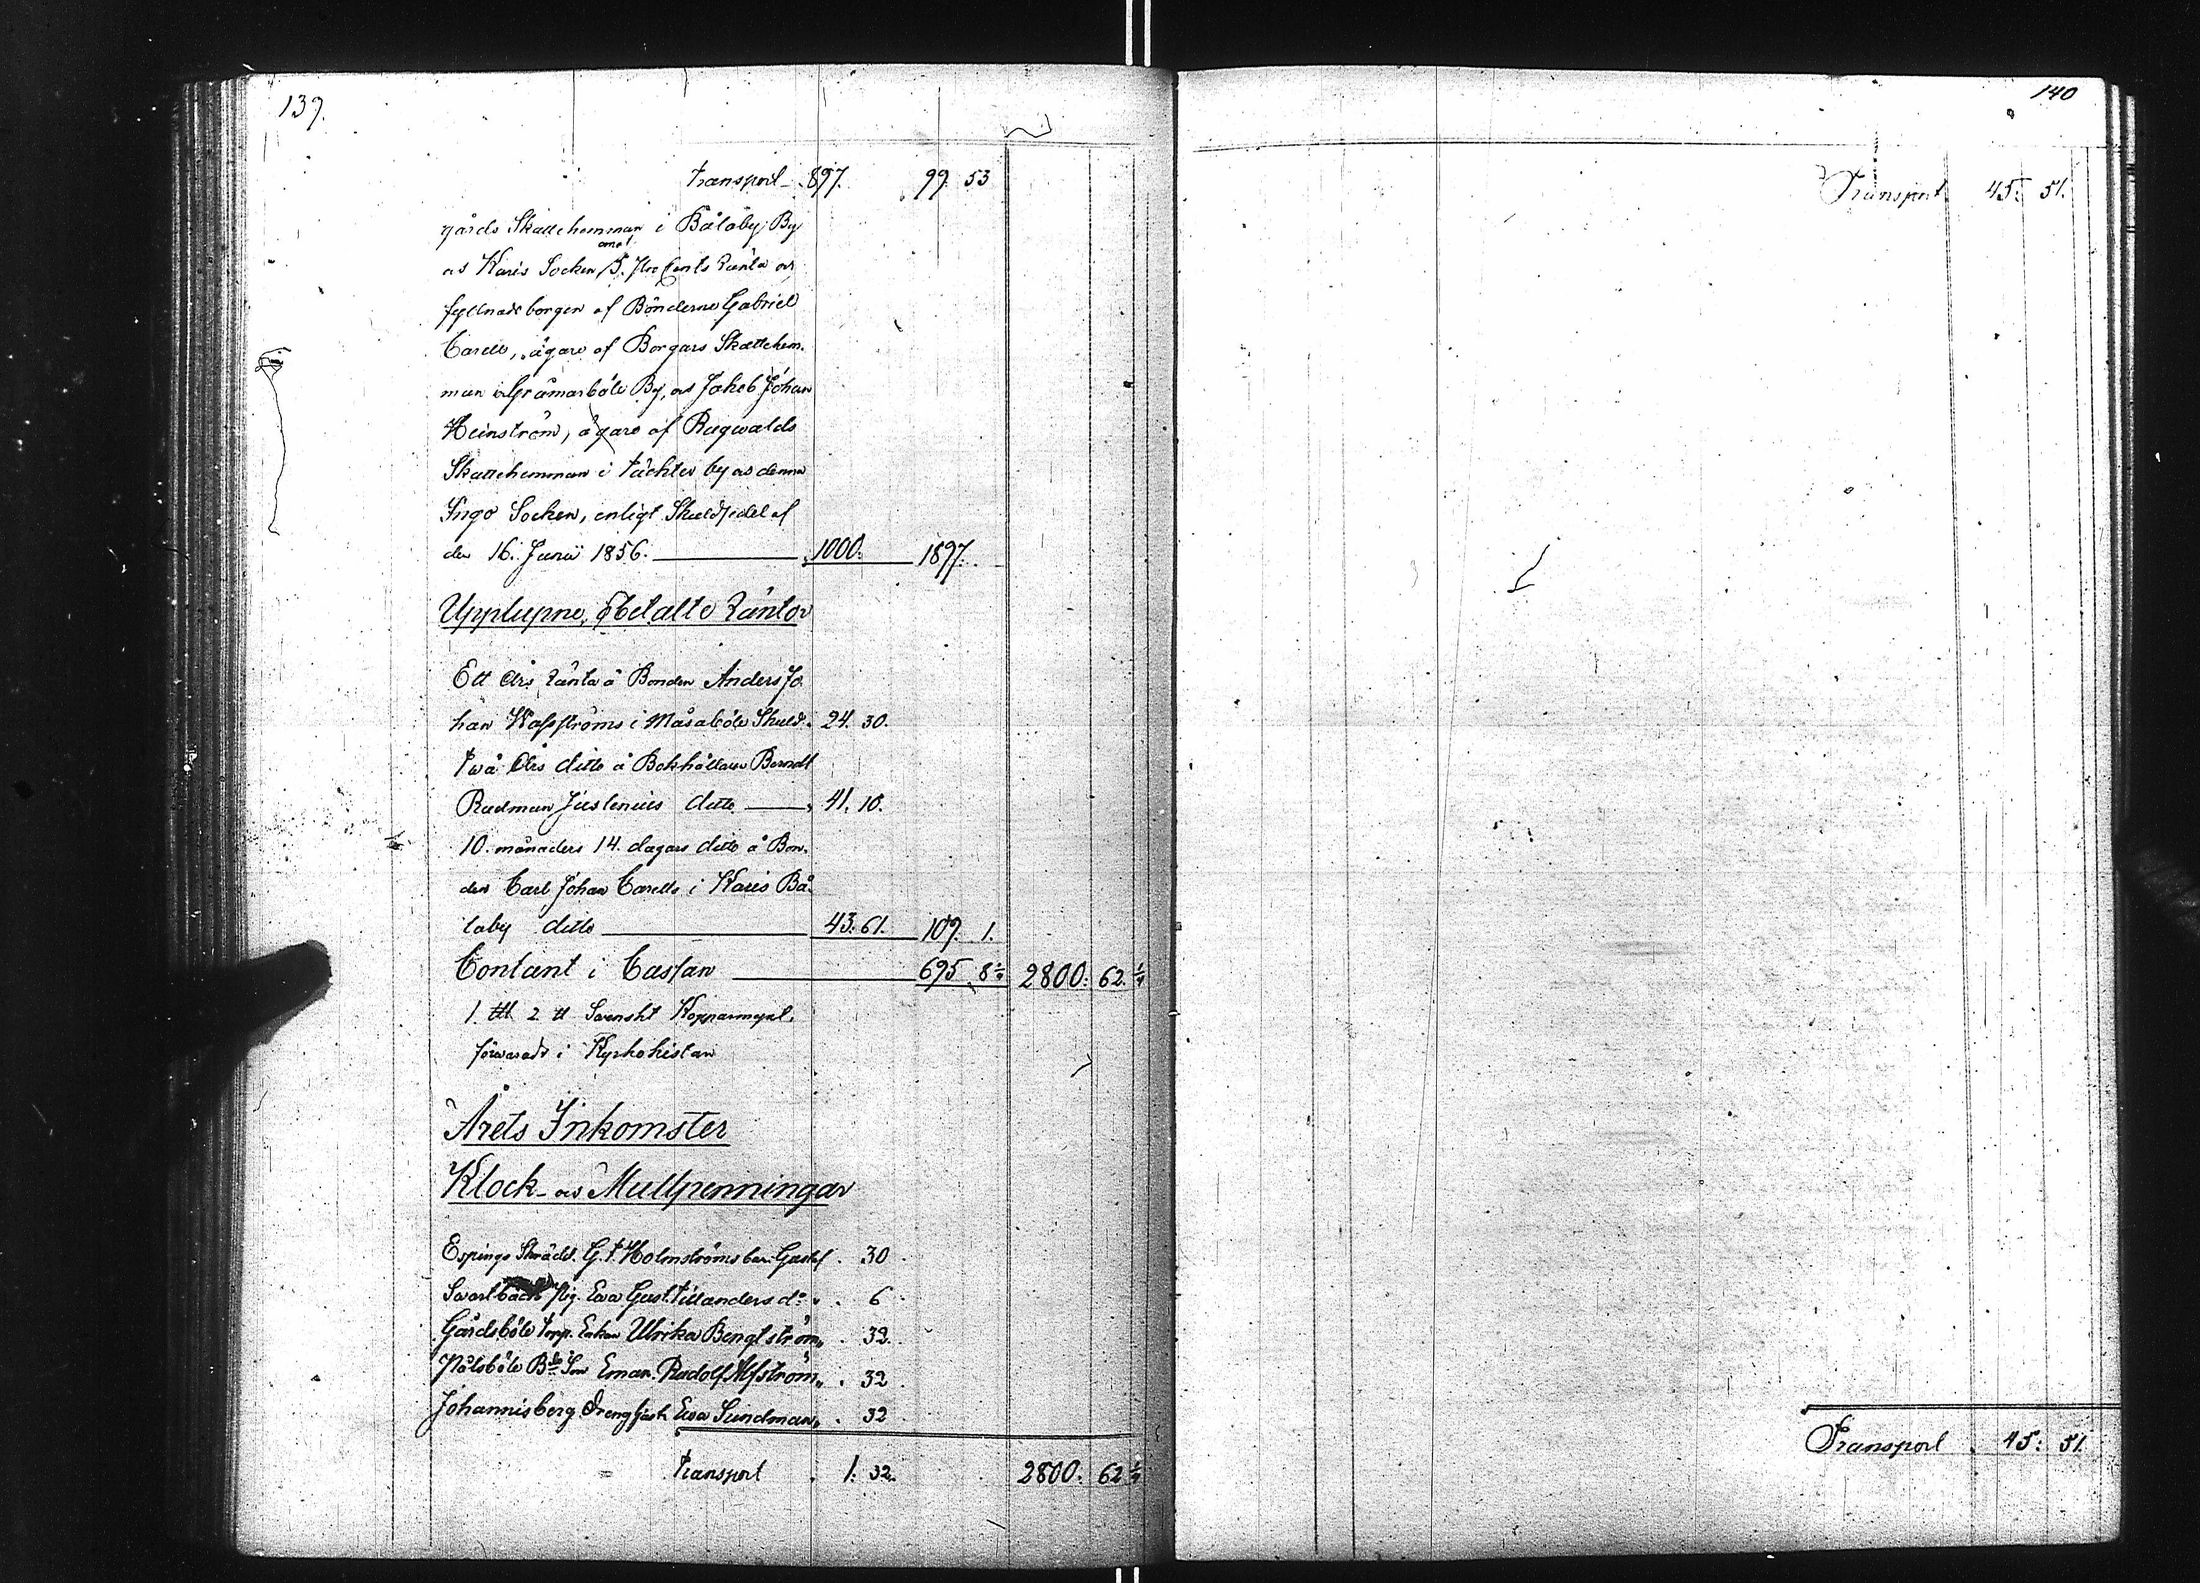 139.
transport 897. 99. 53
gårds Skattehemman i Bålaby By
as Karis Socken, emot 5. Pro Cents Ränta as
fyllnads borgen af Bönderne Gabriel
Carell, ägare af Borgars Skattehem-
man i Gråmarböle By, as Jakob Johan
Heinström, ägare af Ragwalds
Skattehemman i Täckter by as denna
Ingo Socken, enligt Skuldsedel af
den 16. Junii 1856. 1000. 1897.
Upplupne, obetalte Räntor
Ett Års Ränta å Bonden Anders Jo
han Wasströms i Måsaböle Skuld. 24. 30.
Två Års ditto å Bokhållaren Berndt
Rudman Juslenius ditto 41. 10.
10. månaders 14. dagars ditto å Bon-
den Carl Johan Carells i Karis Bå
laby ditto 43. 61. 109. 1.
Contant i Cassan 695. 8 1/4 2800. 62 1/4
1. 2 Svenskt Kopparmynt.
förvarade i Kyrkokistan
Årets Inkomster
Klock- as Mullpenningar
Espings Skrädd. G. Holmströms barn Gustaf. 30
Svartbäck Pig. Eva Gust. Tillanders do 6
Gårdsböle torp. Enkan Ulrika Bengtström 32.
Pålsböle Bde Son Eman. Rudolf Alfström 32
Johannisberg Drenghust. Eva Sundman 32
transport 1. 32. 2800. 62 1/4
140
Transport 45. 51.
Transport 45. 51.